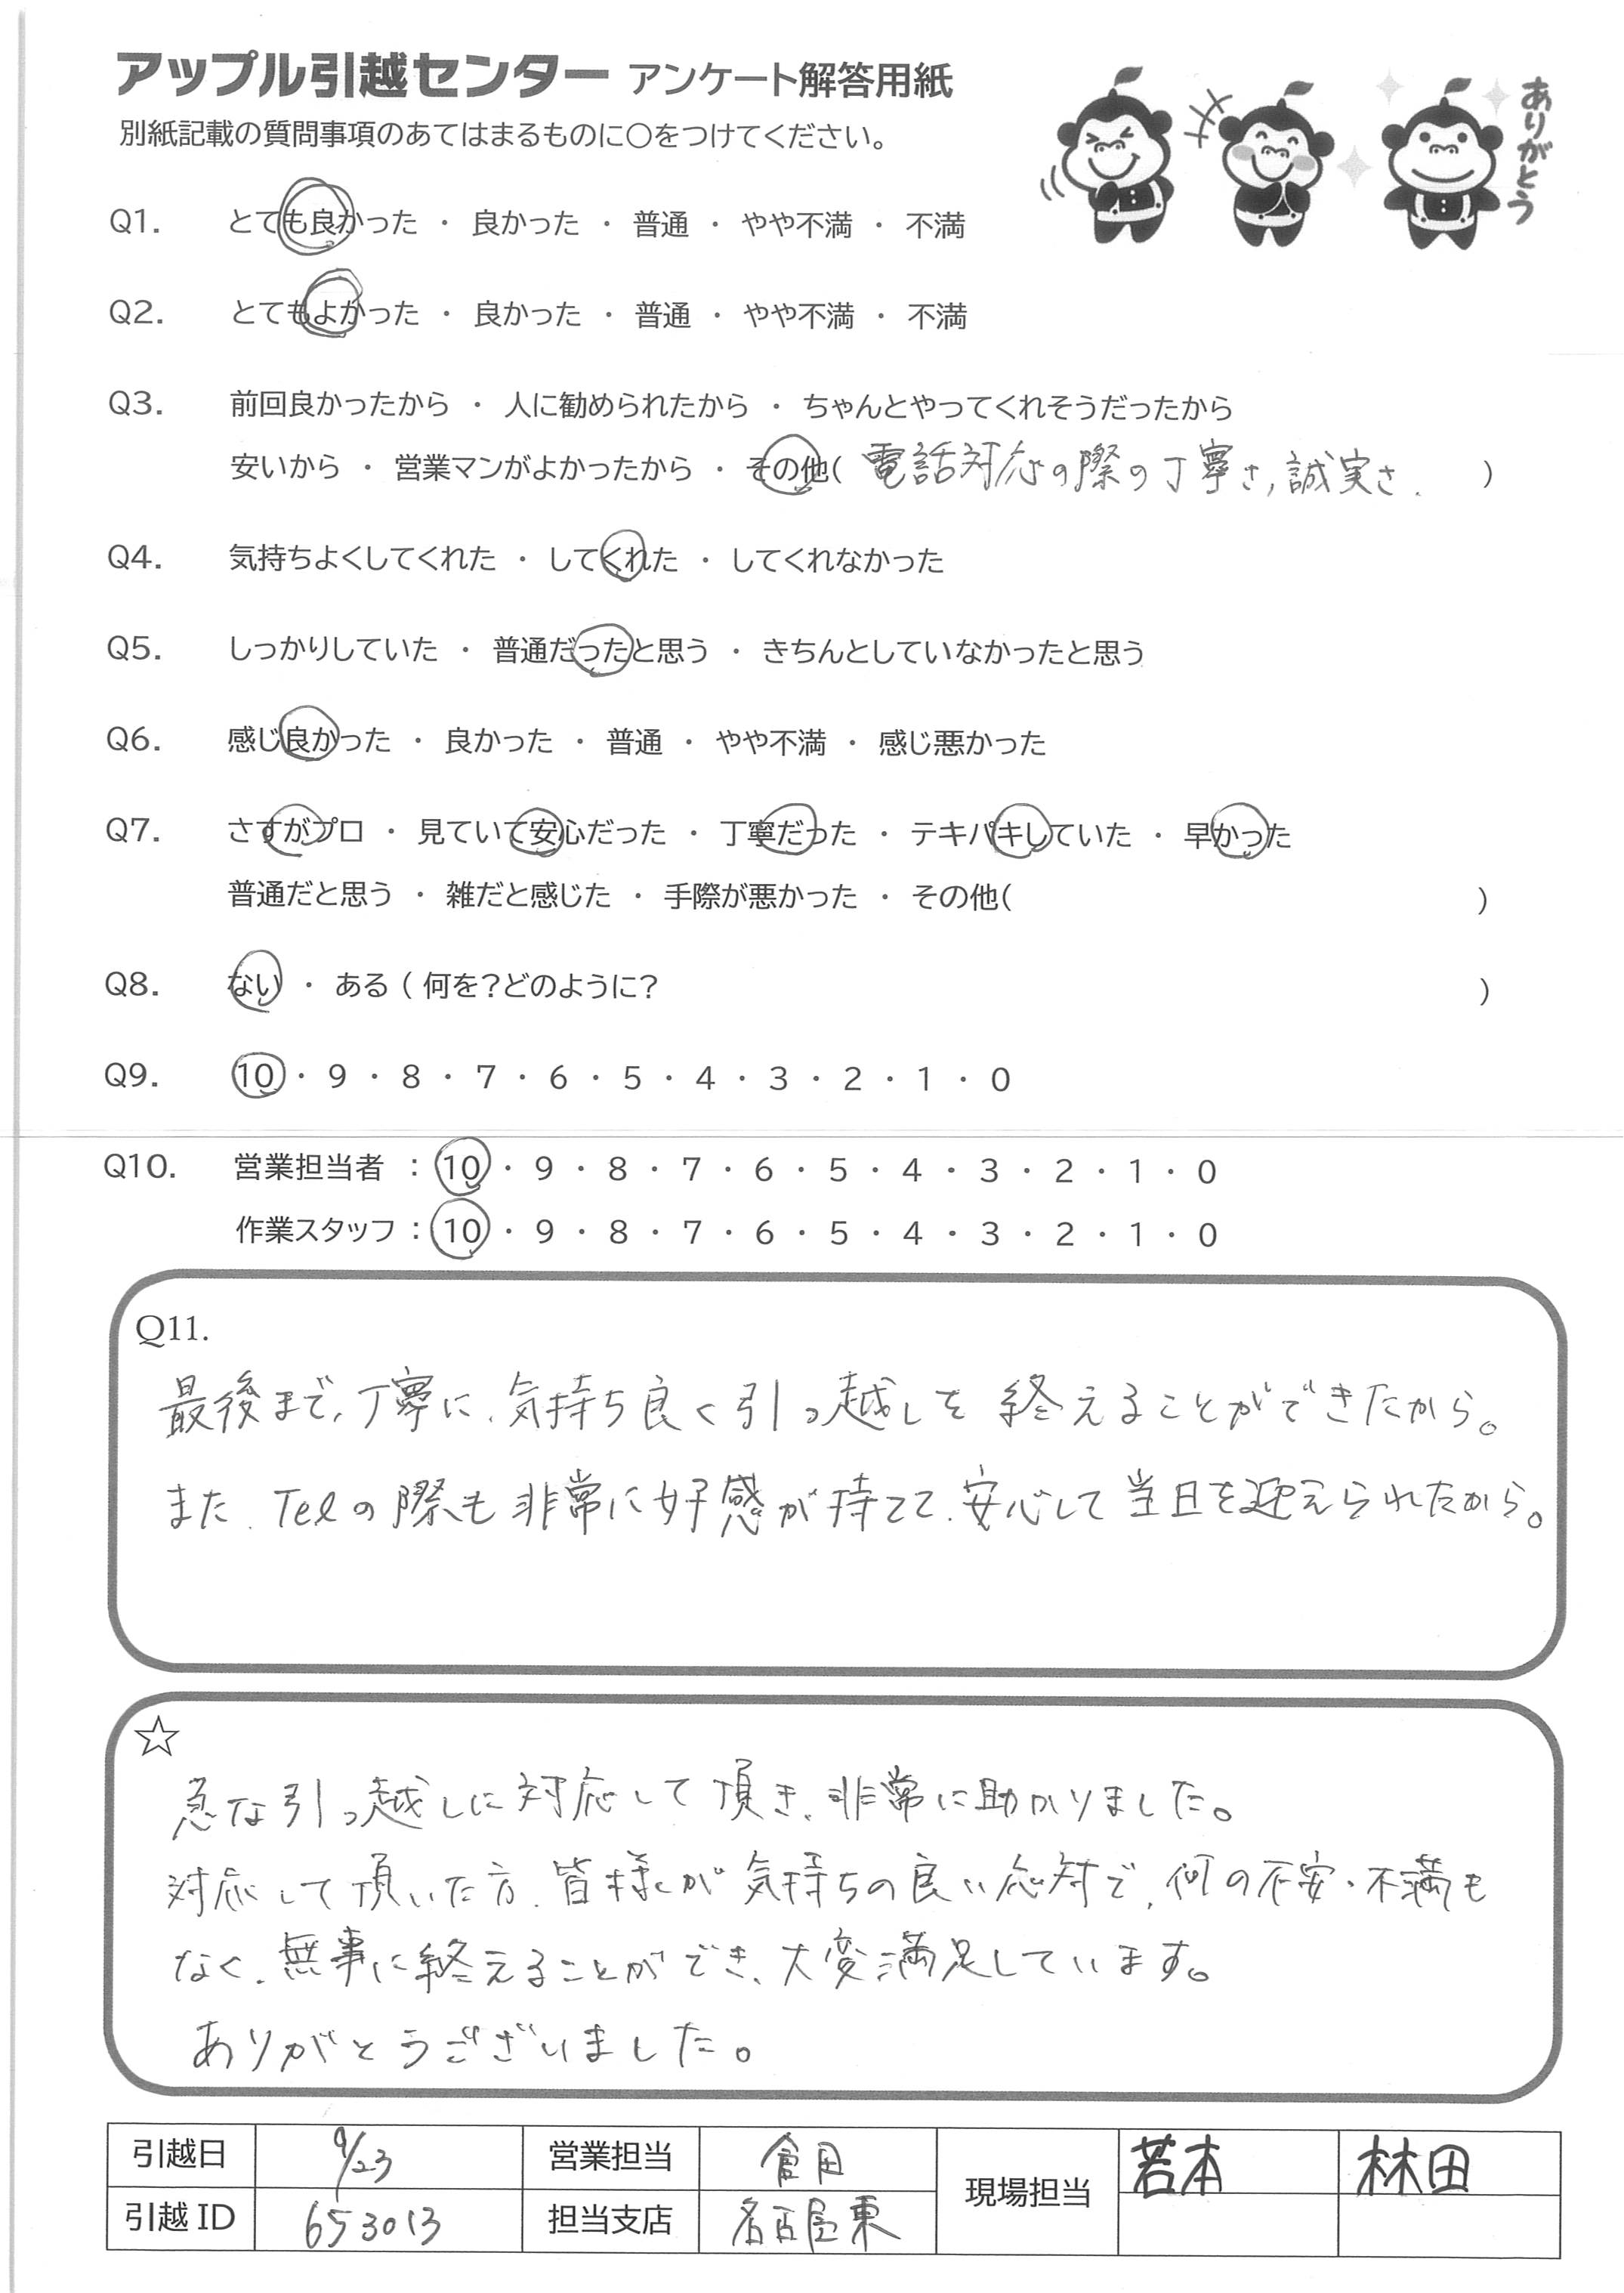 アップル引越センター アンケート解答用紙
別紙記載の質問事項のあてはまるものに〇をつけてください。
ありがとう
Q1. とても良かった ・ 良かった ・ 普通 ・ やや不満 ・ 不満
Q2. とてもよかった ・ 良かった ・ 普通 ・ やや不満 ・ 不満
Q3. 前回良かったから ・ 人に勧められたから ・ ちゃんとやってくれそうだったから
安いから ・ 営業マンがよかったから ・ その他( 電話対応の際の丁寧さ, 誠実さ. )
Q4. 気持ちよくしてくれた ・ してくれた ・ してくれなかった
Q5. しっかりしていた ・ 普通だったと思う ・ きちんとしていなかったと思う
Q6. 感じ良かった ・ 良かった ・ 普通 ・ やや不満 ・ 感じ悪かった
Q7. さすがプロ ・ 見ていて安心だった ・ 丁寧だった ・ テキパキしていた ・ 早かった
普通だと思う ・ 雑だと感じた ・ 手際が悪かった ・ その他( )
Q8. ない ・ ある ( 何を?どのように? )
Q9. 10 ・ 9 ・ 8 ・ 7 ・ 6 ・ 5 ・ 4 ・ 3 ・ 2 ・ 1 ・ 0
Q10. 営業担当者 : 10 ・ 9 ・ 8 ・ 7 ・ 6 ・ 5 ・ 4 ・ 3 ・ 2 ・ 1 ・ 0
作業スタッフ : 10 ・ 9 ・ 8 ・ 7 ・ 6 ・ 5 ・ 4 ・ 3 ・ 2 ・ 1 ・ 0
Q11.
最後まで、丁寧に、気持ち良く引っ越しを 終えることができたから。
また、Telの際も非常に好感が持てて、安心して当日を迎えられたから。
☆
急な引っ越しに対応して頂き、非常に助かりました。
対応して頂いた方、皆様が気持ちの良い応対で、何の不安・不満も
なく、無事に終えることができ、大変満足しています。
ありがとうございました。
引越日 9/23 営業担当 倉田 現場担当 若本 林田
引越 ID 653013 担当支店 名古屋東